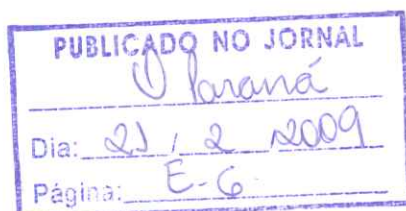 PUBLICADO NO JORNAL
O Paraná
Dia: 21 / 2 2009
Página: E-6